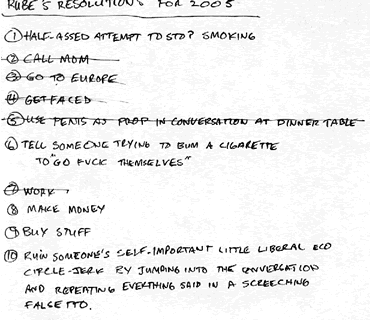 RUBE'S RESOLUTIONS FOR 2005
① HALF-ASSED ATTEMPT TO STOP SMOKING
② CALL MOM
③ GO TO EUROPE
④ GET FACED
⑤ USE PENIS AS PROP IN CONVERSATION AT DINNER TABLE
⑥ TELL SOMEONE TRYING TO BUM A CIGARETTE
TO "GO FUCK THEMSELVES"
⑦ WORK
⑧ MAKE MONEY
⑨ BUY STUFF
⑩ RUIN SOMEONE'S SELF-IMPORTANT LITTLE LIBERAL ECO
CIRCLE-JERK BY JUMPING INTO THE CONVERSATION
AND REPEATING EVERYTHING SAID IN A SCREECHING
FALSETTO.